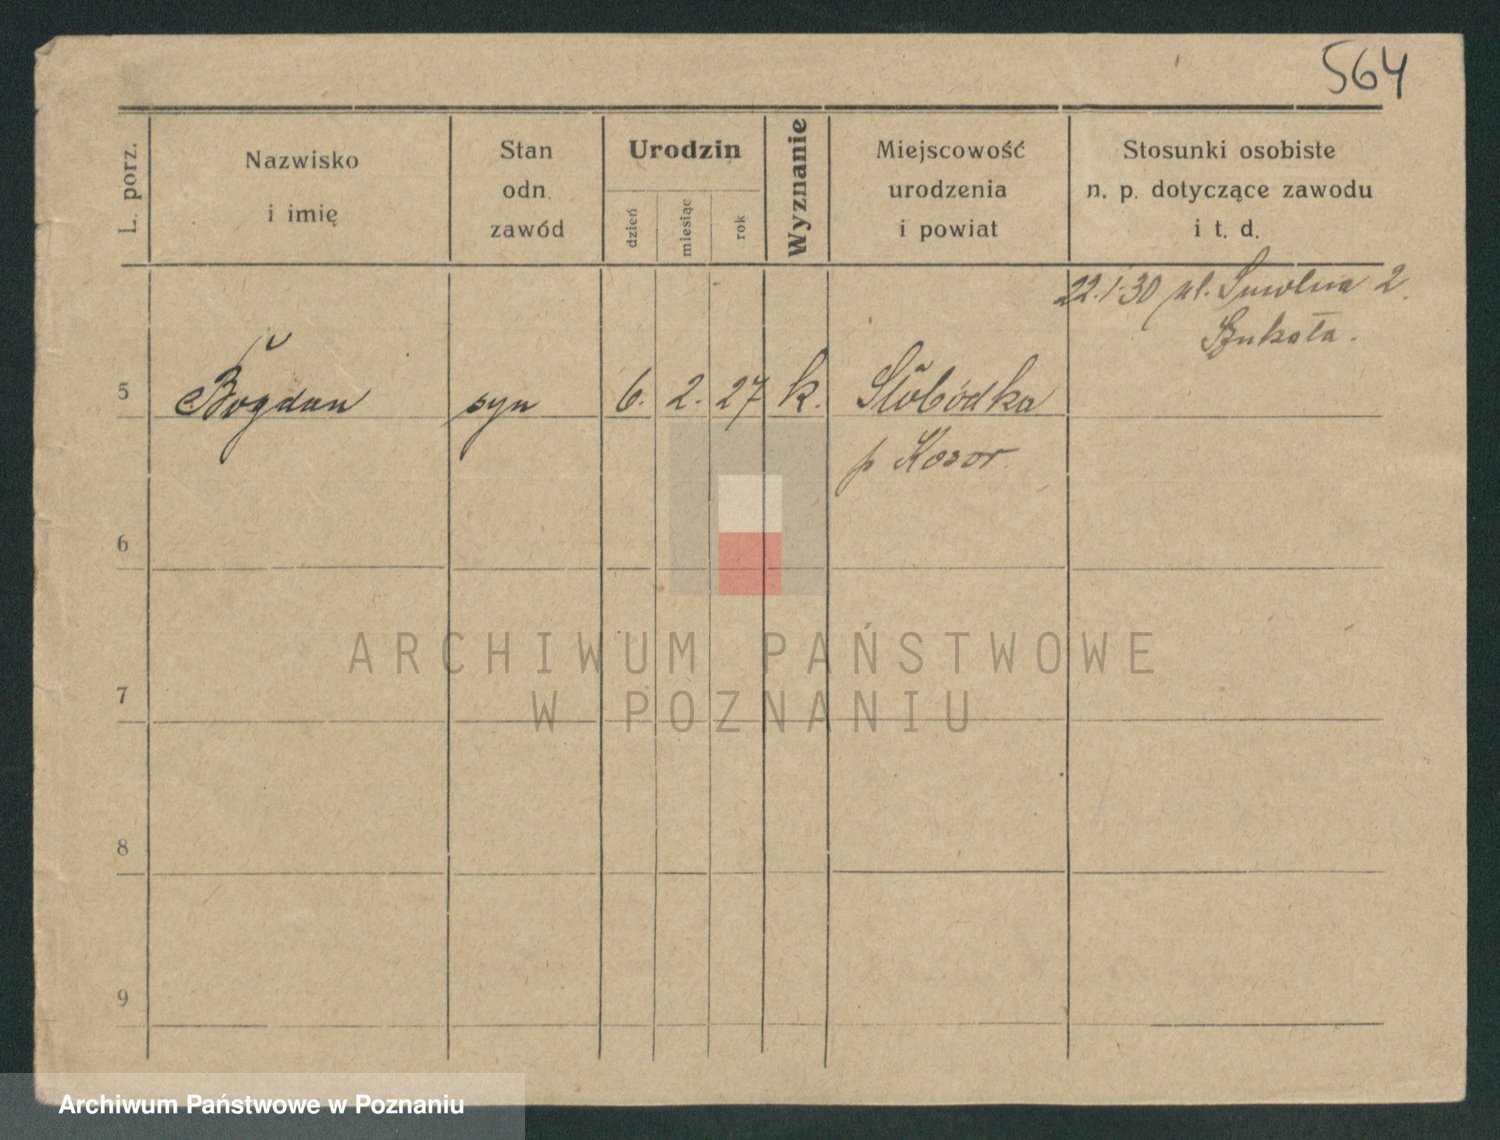 564
L. porz.
Nazwisko
i imię
Stan
odn.
zawód
Urodzin
dzień
miesiąc
rok
Wyznanie
Miejscowość
urodzenia
i powiat
Stosunki osobiste
n. p. dotyczące zawodu
i t. d.
22.1.30 ul. Smolna 2.
5 Bogdan syn 6. 2. 27 k. Słobódka
p Kosor
6
7
8
9
ARCHIWUM PAŃSTWOWE
W POZNANIU
Archiwum Państwowe w Poznaniu